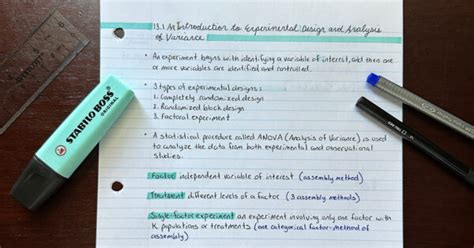 13.1 An Introduction to Experimental Design and Analysis
of Variance
• An experiment begins with identifying a variable of interest, and then one
or more variables are identified and controlled.
• 3 types of experimental designs:
1. Completely randomized design
2. Randomized block design
3. Factorial experiment
• A statistical procedure called ANOVA (Analysis of Variance) is used
to analyze the data from both experimental and observational
studies.
Factor: independent variable of interest (assembly method)
Treatment: different levels of a factor (3 assembly methods)
Single-factor experiment: an experiment involving only one factor with
K populations or treatments (one categorical factor-method of
assembly)
STABILO BOSS
ORIGINAL